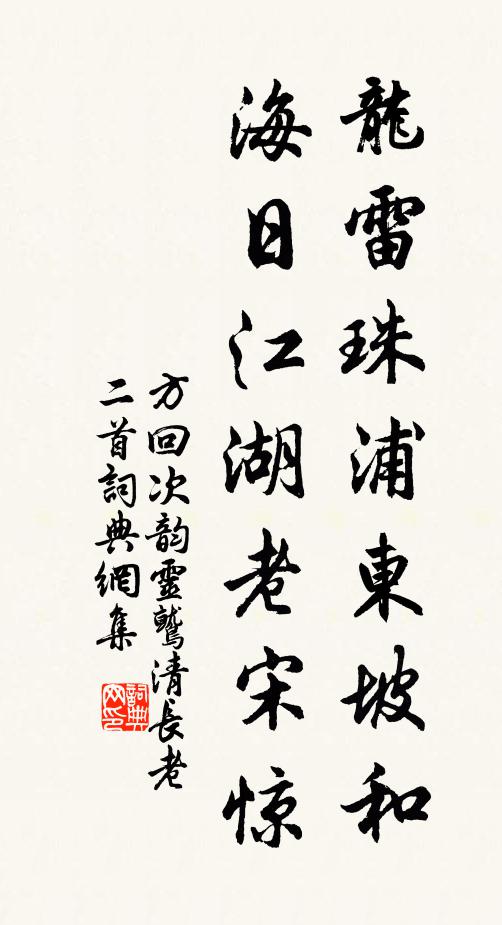 龍雷珠浦東坡和
海日江湖老宋惊
方回次韵靈鷲清長老
二首詞典網集
詞典網印